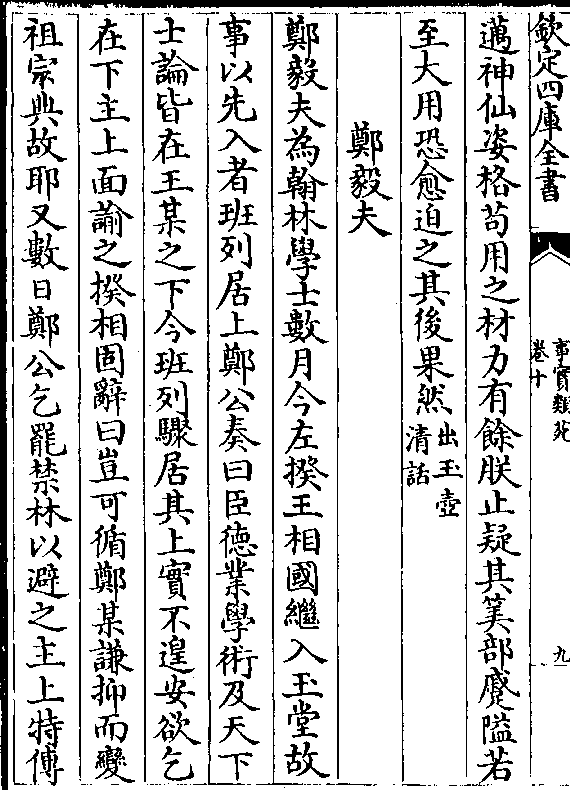 欽定四庫全書
事實類苑
卷十
九
邁神仙姿格苟用之材力有餘朕止疑其筭部蹙隘若
至大用恐愈迫之其後果然出玉壺
清話
鄭毅夫
鄭毅夫為翰林學士數月今左揆王相國繼入玉堂故
事以先入者班列居上鄭公奏曰臣德業學術及天下
士論皆在王某之下今班列驟居其上實不遑安欲乞
在下主上面諭之揆相固辭曰豈可循鄭某謙抑而變
祖宗典故耶又數日鄭公乞罷禁林以避之主上特傳